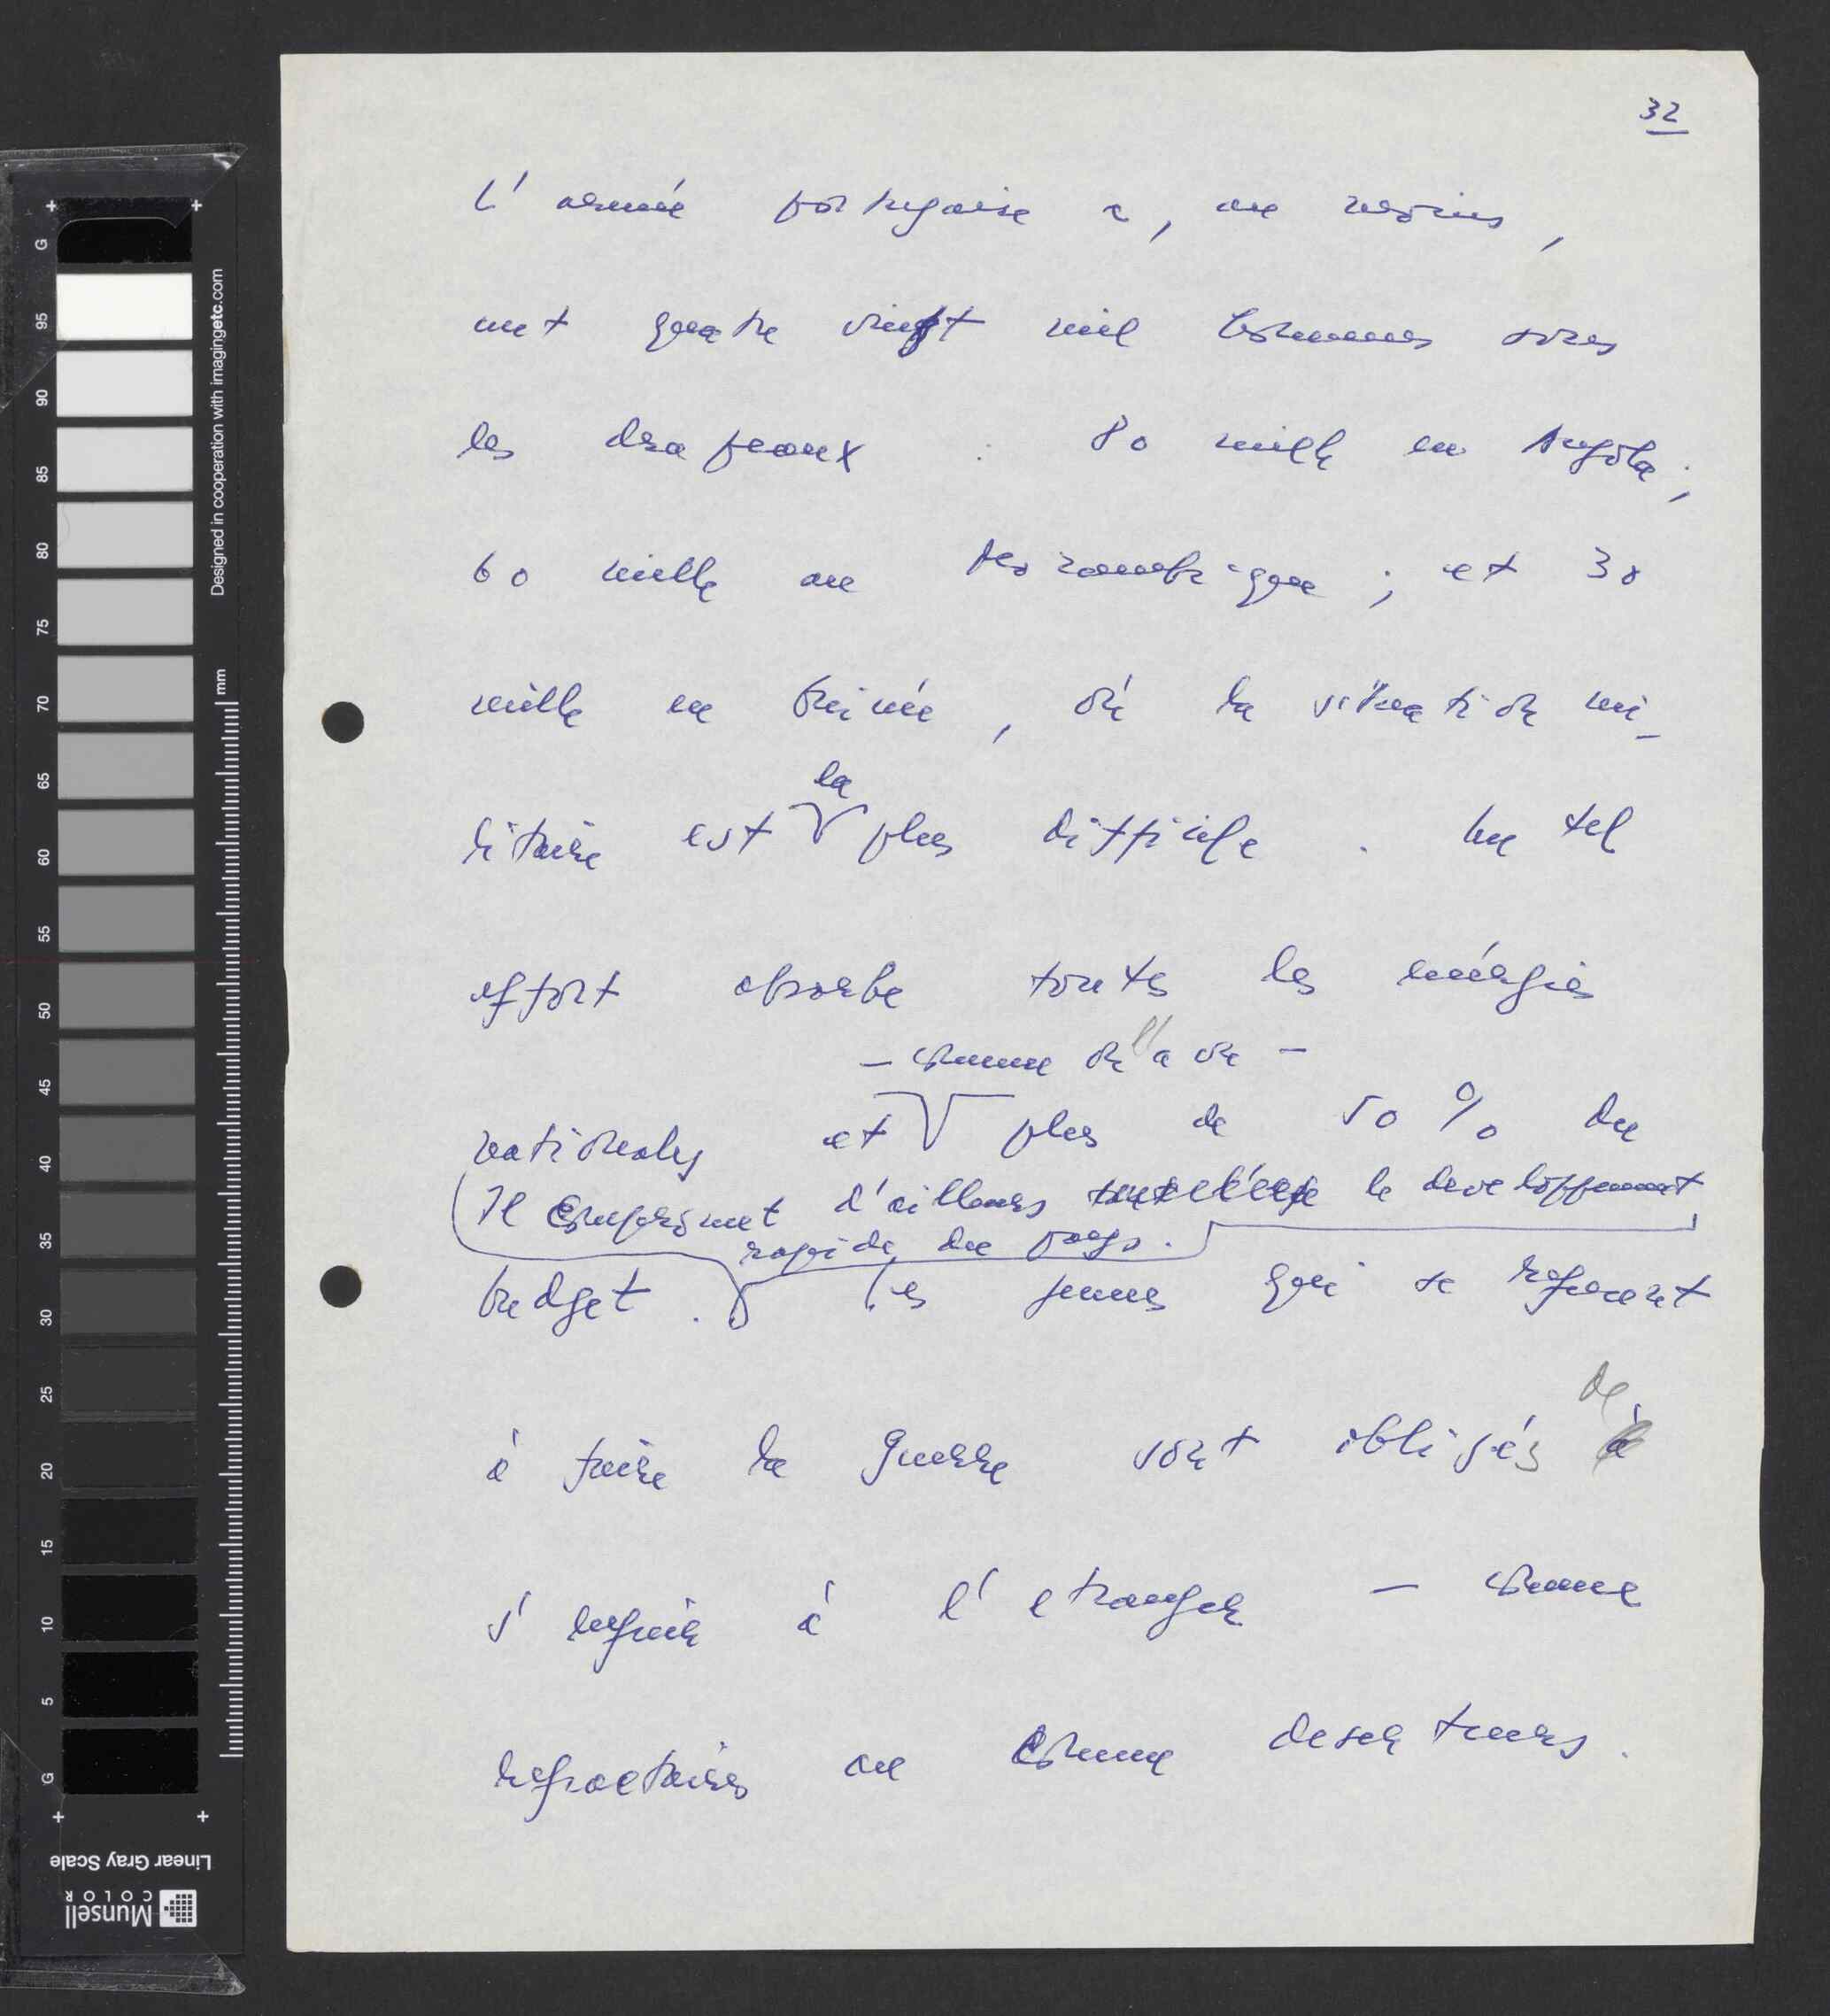 32
L' armée portugaise a, au moins,
cent quatre vingt mil hommes sous
les drapeaux : 80 mille en Angola;
60 mille au Mozambique; et 30
mille en Guinée, où la situation mi-
la
litaire est plus difficile. Un tel
effort absorbe toutes les énergies
– comme on l'a vu –
nationales et plus de 50 % du
Il compromet d'ailleurs le developpement
rapide du pays.
budget. Les jeunes qui se refusent
de
à faire la guerre sont obligés à
s' enfuir à l' etranger – comme
refractaires ou comme deserteurs.
G
95
90
85
80
75
70
65
60
55
50
45
40
35
30
25
20
15
10
5
G
mm
Designed in cooperation with imagingetc.com
Linear Gray Scale
Munsell
COLOR